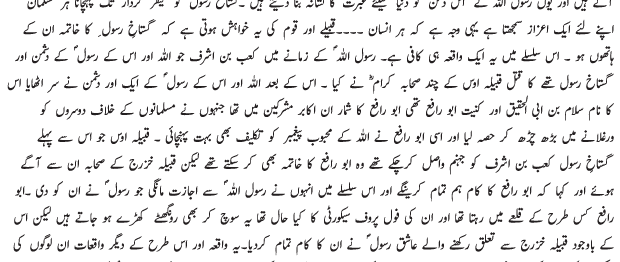 آتے ہیں اور یوں رسول اللہ کے اس دشمن کو دنیا کیلئے عبرت کا نشانہ بنا دیتے ہیں ۔ گستاخ رسول کو کیفر کردار تک پہنچانا ہر مسلمان
اپنے لئے ایک اعزاز سمجھتا ہے یہی وجہ ہے کہ ہر انسان ۔۔۔۔قبیلے اور قوم کی یہ خواہش ہوتی ہے کہ گستاخ رسول ِ کا خاتمہ ان کے
ہاتھوں ہو ۔ اس سلسلے میں یہ ایک واقعہ ہی کافی ہے۔ رسول اللہ ؐ کے زمانے میں کعب بن اشرف جو اللہ اور اس کے رسول ؐ کے دشمن اور
گستاخ رسول تھے کا قتل قبیلہ اوس کے چند صحابہ کرام ؓ نے کیا ۔ اس کے بعد اللہ اور اس کے رسول ؐ کے ایک اور دشمن نے سر اٹھایا اس
کا نام سلام بن ابی الحقیق اور کنیت ابو رافع تھی ابو رافع کا شمار ان اکابر مشرکین میں تھا جنہوں نے مسلمانوں کے خلاف دوسروں کو
ورغلانے میں بڑھ چڑھ کر حصہ لیا اور اسی ابو رافع نے اللہ کے محبوب پیغمبر کو تکلیف بھی بہت پہنچائی ۔ قبیلہ اوس جو اس سے پہلے
گستاخ رسول کعب بن اشرف کو جہنم واصل کرچکے تھے وہ ابو رافع کا خاتمہ بھی کر سکتے تھے لیکن قبیلہ خزرج کے صحابہ ان سے آگے
ہوئے اور کہا کہ ابو رافع کا کام ہم تمام کرینگے اور اس سلسلے میں انہوں نے رسول اللہ ؐ سے اجازت مانگی جو رسول ؐ نے ان کو دی ۔ابو
رافع کس طرح کے قلعے میں رہتا تھا اور ان کی فول پروف سیکورٹی کا کیا حال تھا یہ سوچ کر بھی رونگھٹے کھڑے ہو جاتے ہیں لیکن اس
کے باوجود قبیلہ خزرج سے تعلق رکھنے والے عاشق رسول ؐ نے ان کا کام تمام کردیا۔یہ واقعہ اور اس طرح کے دیگر واقعات ان لوگوں کی